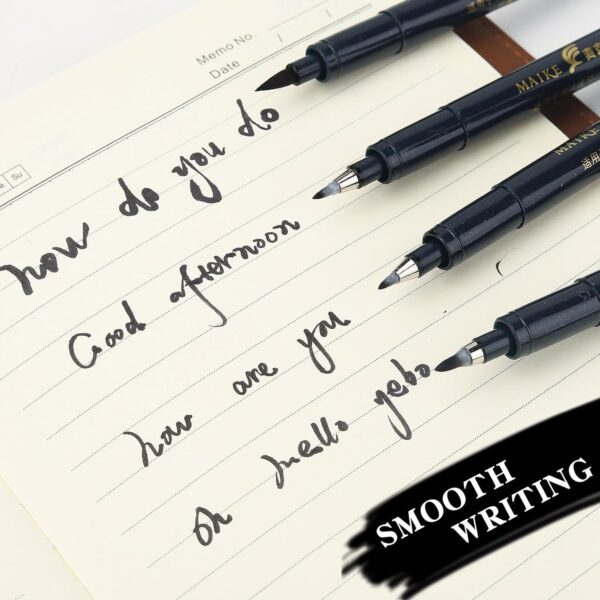 Memo No.
Date
Su
MAIKE
MAIKE
how do you do
Good afternoon
how are you
oh hello yebo
SMOOTH
WRITING